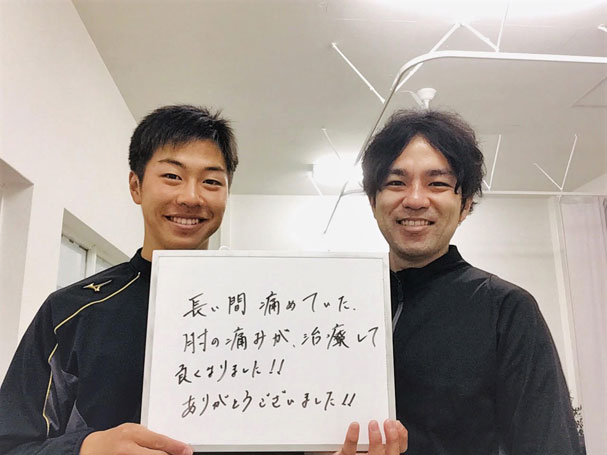 長い間痛めていた、
肘の痛みが、治療して
良くなりました!!
ありがとうございました!!